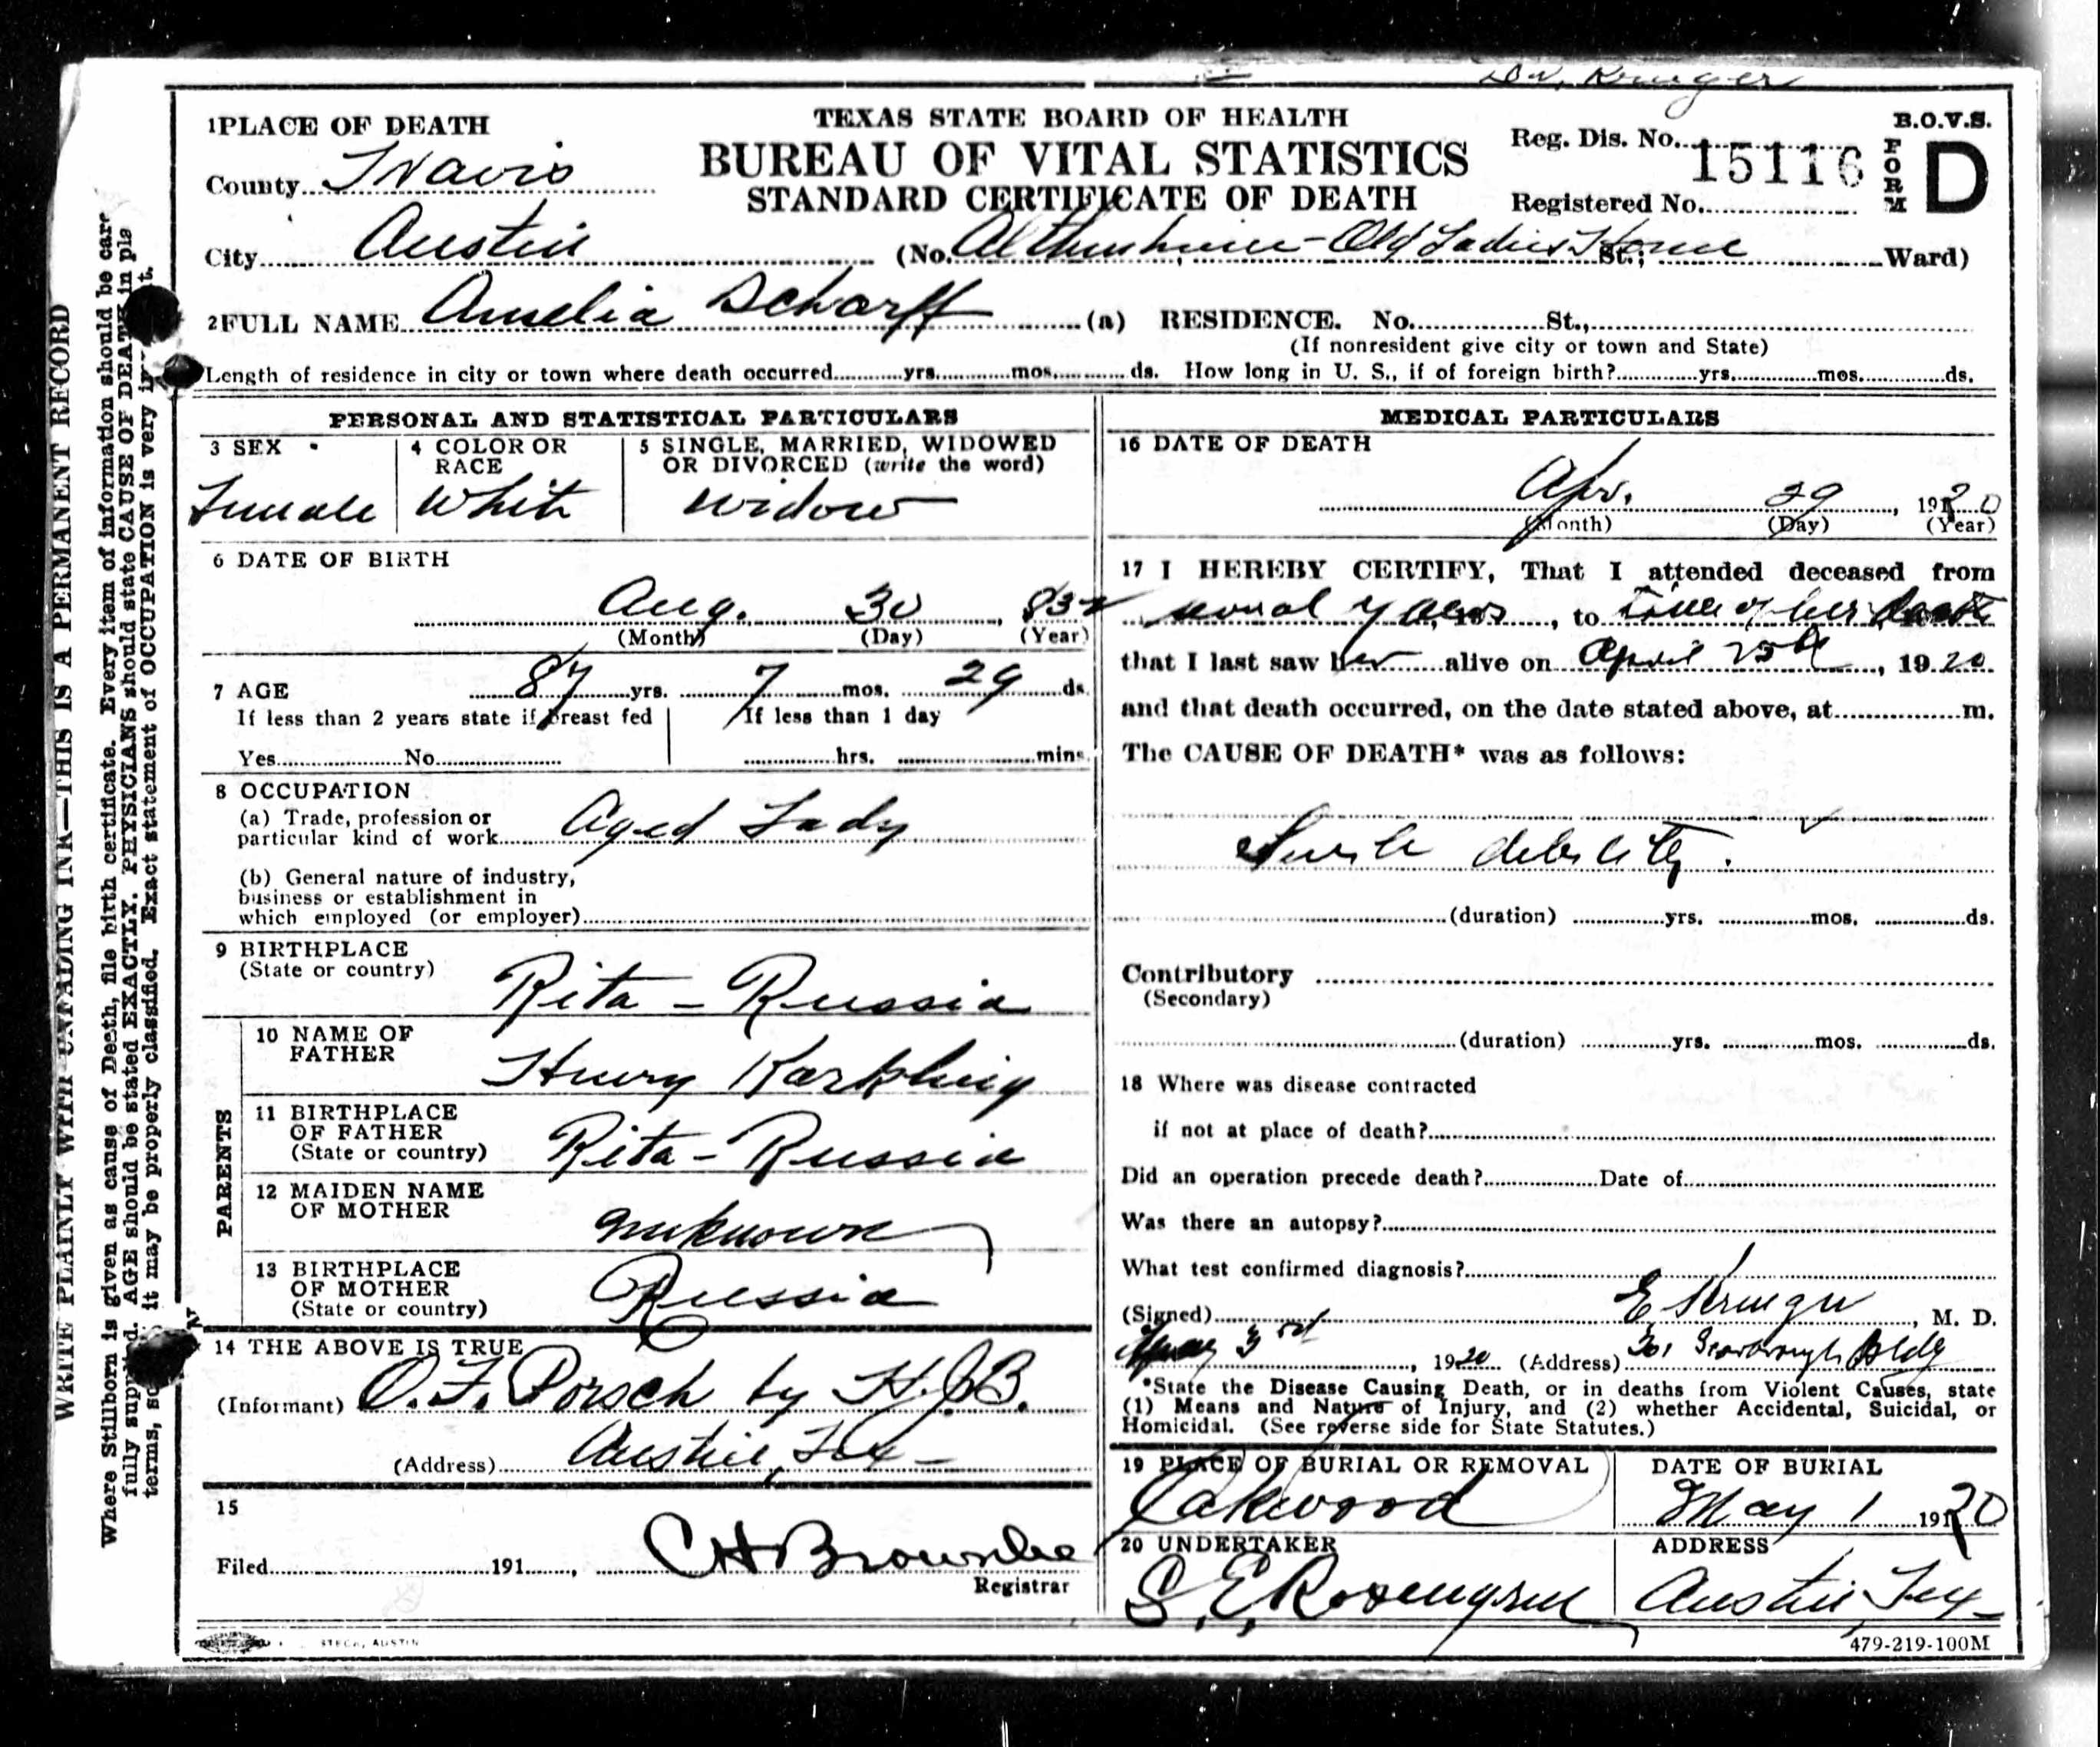 Dr. Krueger
1 PLACE OF DEATH
TEXAS STATE BOARD OF HEALTH
BUREAU OF VITAL STATISTICS
STANDARD CERTIFICATE OF DEATH
Reg. Dis. No. 15116
Registered No.
B.O.V.S.
FORM D
County Travis
City Austin (No. Altenheim - Old Ladies Home St.; Ward)
2 FULL NAME Amelia Scharff (a) RESIDENCE. No. St.,
(If nonresident give city or town and State)
Length of residence in city or town where death occurred yrs. mos. ds. How long in U. S., if of foreign birth? yrs. mos. ds.
PERSONAL AND STATISTICAL PARTICULARS
3 SEX
Female
4 COLOR OR RACE
White
5 SINGLE, MARRIED, WIDOWED
OR DIVORCED (write the word)
Widow
6 DATE OF BIRTH
Aug. 30, 832
(Month) (Day) (Year)
7 AGE 87 yrs. 7 mos. 29 ds.
If less than 2 years state if breast fed
If less than 1 day
Yes No
hrs. mins.
8 OCCUPATION
(a) Trade, profession or
particular kind of work Aged Lady
(b) General nature of industry,
business or establishment in
which employed (or employer)
9 BIRTHPLACE
(State or country) Rita - Russia
PARENTS
10 NAME OF
FATHER Henry
11 BIRTHPLACE
OF FATHER
(State or country) Rita - Russia
12 MAIDEN NAME
OF MOTHER unknown
13 BIRTHPLACE
OF MOTHER
(State or country) Russia
14 THE ABOVE IS TRUE
(Informant) O. F. Porsch by H.J.B.
(Address) Austin, Tex -
15
Filed 191 ,
Registrar
STECK, AUSTIN
MEDICAL PARTICULARS
16 DATE OF DEATH
Apr. 29, 1920
(Month) (Day) (Year)
17 I HEREBY CERTIFY, That I attended deceased from
several years, 19 , to time of her death
that I last saw her alive on April 25th, 19 20.
and that death occurred, on the date stated above, at m.
The CAUSE OF DEATH* was as follows:
Senile debility.
(duration) yrs. mos. ds.
Contributory
(Secondary)
(duration) yrs. mos. ds.
18 Where was disease contracted
if not at place of death?
Did an operation precede death? Date of
Was there an autopsy?
What test confirmed diagnosis?
(Signed) E Krueger, M. D.
May 3rd, 1920 (Address) 301 Scarborough Bldg
*State the Disease Causing Death, or in deaths from Violent Causes, state
(1) Means and Nature of Injury, and (2) whether Accidental, Suicidal, or
Homicidal. (See reverse side for State Statutes.)
19 PLACE OF BURIAL OR REMOVAL
Oakwood
DATE OF BURIAL
May 1 1920
20 UNDERTAKER
S. E. Rosengren
ADDRESS
Austin, Tex -
479-219-100M
WRITE PLAINLY WITH UNFADING INK—THIS IS A PERMANENT RECORD
Where Stillborn is given as cause of Death, file birth certificate. Every item of information should be
fully AGE should be stated EXACTLY. PHYSICIANS should state CAUSE OF DEATH in
terms, it may be properly classified. Exact statement of OCCUPATION is very